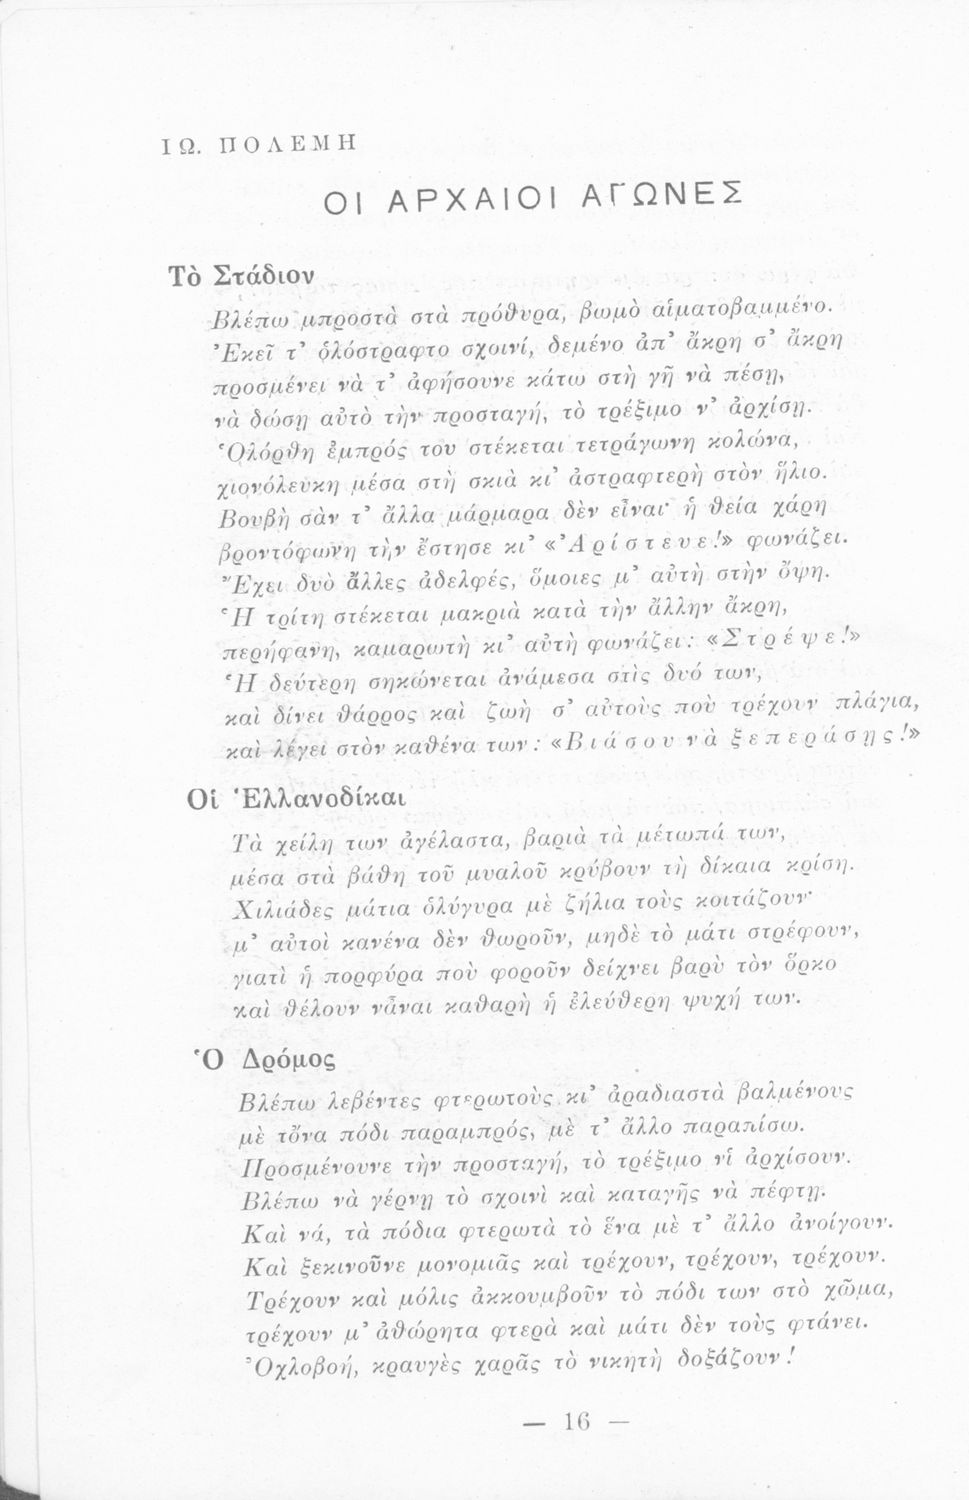 ΙΩ. ΠΟΛΕΜΗ
ΟΙ ΑΡΧΑΙΟΙ ΑΓΩΝΕΣ
Τὸ Στάδιον
Βλέπω μπροστὰ στὰ πρόθυρα, βωμὸ αἱματοβαμμένο.
Ἐκεῖ τ' ὁλόστραφτο σχοινί, δεμένο ἀπ' ἄκρη σ' ἄκρη
προσμένει νὰ τ' ἀφήσουνε κάτω στὴ γῆ νὰ πέσῃ,
νὰ δώσῃ αὐτὸ τὴν προσταγή, τὸ τρέξιμο ν' ἀρχίσῃ.
Ὁλόρθη ἐμπρός του στέκεται τετράγωνη κολώνα,
χιονόλευκη μέσα στὴ σκιὰ κι' ἀστραφτερὴ στὸν ἥλιο.
Βουβὴ σὰν τ' ἄλλα μάρμαρα δὲν εἶναι· ἡ θεία χάρη
βροντόφωνη τὴν ἔστησε κι' «Ἀρίστευε!» φωνάζει.
Ἔχει δυὸ ἄλλες ἀδελφές, ὅμοιες μ' αὐτὴ στὴν ὄψη.
Ἡ τρίτη στέκεται μακριὰ κατὰ τὴν ἄλλην ἄκρη,
περήφανη, καμαρωτὴ κι' αὐτὴ φωνάζει: «Στρέψε!»
Ἡ δεύτερη σηκώνεται ἀνάμεσα στὶς δυό των,
καὶ δίνει θάρρος καὶ ζωὴ σ' αὐτοὺς ποὺ τρέχουν πλάγια,
καὶ λέγει στὸν καθένα των: «Βιάσου νὰ ξεπεράσῃς!»
Οἱ Ἑλλανοδίκαι
Τὰ χείλη των ἀγέλαστα, βαριὰ τὰ μέτωπά των,
μέσα στὰ βάθη τοῦ μυαλοῦ κρύβουν τὴ δίκαια κρίση.
Χιλιάδες μάτια ὁλόγυρα μὲ ζήλια τοὺς κοιτάζουν·
μ' αὐτοὶ κανένα δὲν θωροῦν, μηδὲ τὸ μάτι στρέφουν,
γιατὶ ἡ πορφύρα ποὺ φοροῦν δείχνει βαρὺ τὸν ὅρκο
καὶ θέλουν νἆναι καθαρὴ ἡ ἐλεύθερη ψυχή των.
Ὁ Δρόμος
Βλέπω λεβέντες φτερωτοὺς κι' ἀραδιαστὰ βαλμένους
μὲ τὄνα πόδι παραμπρός, μὲ τ' ἄλλο παραπίσω.
Προσμένουνε τὴν προσταγή, τὸ τρέξιμο ν' ἀρχίσουν.
Βλέπω νὰ γέρνῃ τὸ σχοινὶ καὶ καταγῆς νὰ πέφτῃ.
Καὶ νά, τὰ πόδια φτερωτὰ τὸ ἕνα μὲ τ' ἄλλο ἀνοίγουν.
Καὶ ξεκινοῦνε μονομιᾶς καὶ τρέχουν, τρέχουν, τρέχουν.
Τρέχουν καὶ μόλις ἀκκουμβοῦν τὸ πόδι των στὸ χῶμα,
τρέχουν μ' ἀθώρητα φτερὰ καὶ μάτι δὲν τοὺς φτάνει.
Ὀχλοβοή, κραυγὲς χαρᾶς τὸ νικητὴ δοξάζουν!
— 16 —